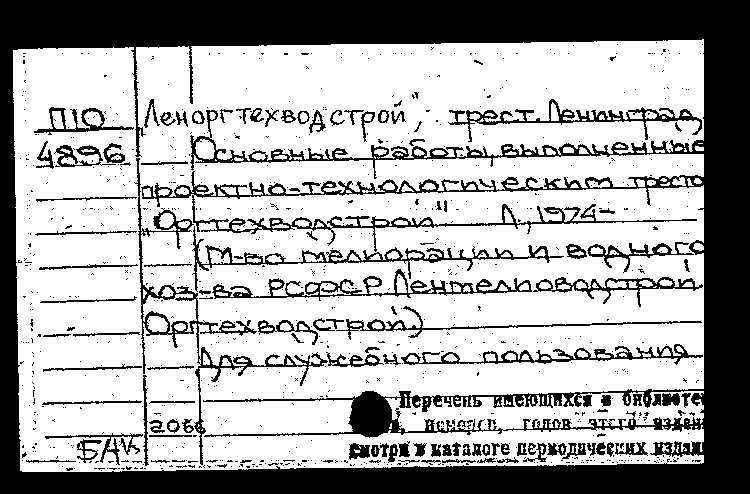 П10
4896
„Леноргтехводстрой“, трест. Ленинград
Основные работы, выполненные
проектно-технологическим тресто
„Оргтехводстрой" Л., 1974-
(М-во мелиорации и водного
хоз-ва РСФСР. Ленмелиоводстрой.
Оргтехводстрой.)
Для служебного пользования
Перечень имеющихся в библиотек
2066
номеров, годов этого издан
БАК
смотри в каталоге периодических издани